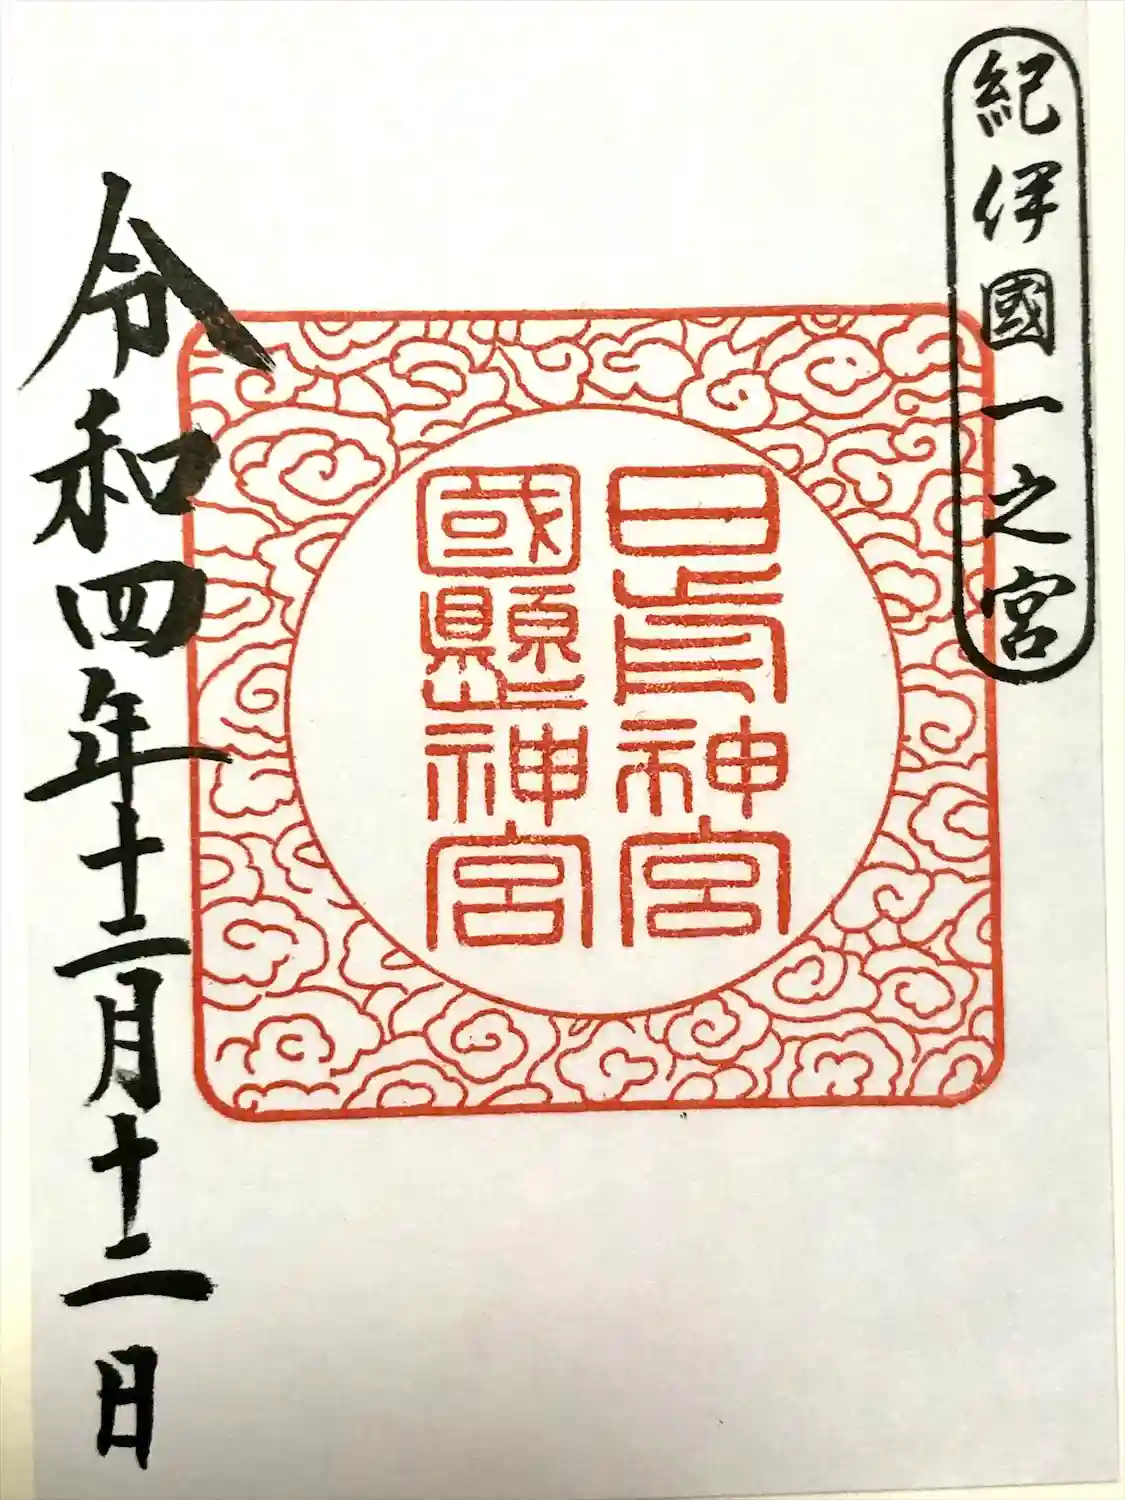 紀伊國一之宮
日前神宮
國懸神宮
令和四年十二月十二日